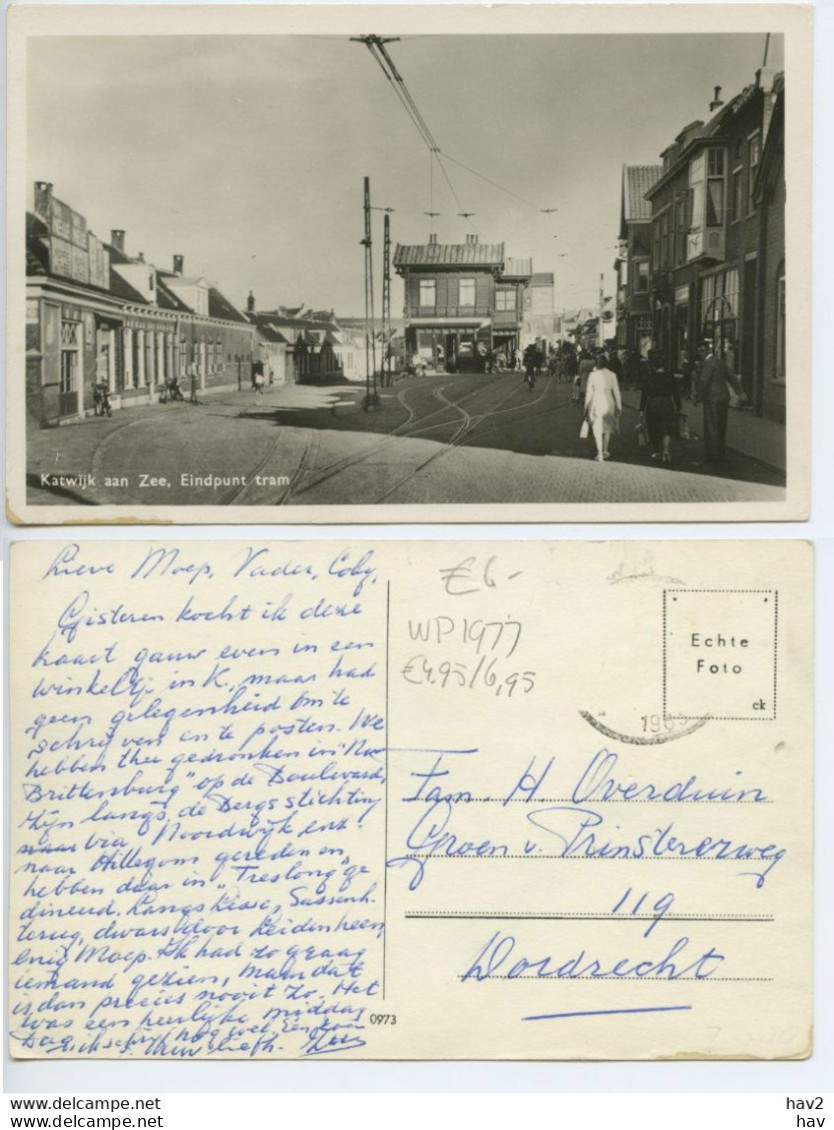 Katwijk aan Zee, Eindpunt tram
Lieve Moep, Vader, Coby,
Gisteren kocht ik deze
kaart gauw even in een
winkeltje in K., maar had
geen gelegenheid om te
schrijven en te posten. We
hebben thee gedronken in "Nw
Brittenburg" op de Boulevard,
zijn langs de Bergstichting
naar via Noordwijk enz.
naar Hillegom gereden en
hebben daar in "Treslong" ge
dineerd. Langs Lisse, Sassenh.
terug, dwars door Leiden heen,
enig Moep. Ik had zo graag
iemand gezien, maar dat
is dan precies nooit zo. Het
was een heerlijke middag
Dag ik schrijf nog wel een
liefh.
0973
€6-
WP1977
€4.95/6,95
Echte
Foto
ck
Fam. H Overduin
Groen v. Prinstererweg
119
Dordrecht
hav2
www.delcampe.net
hav